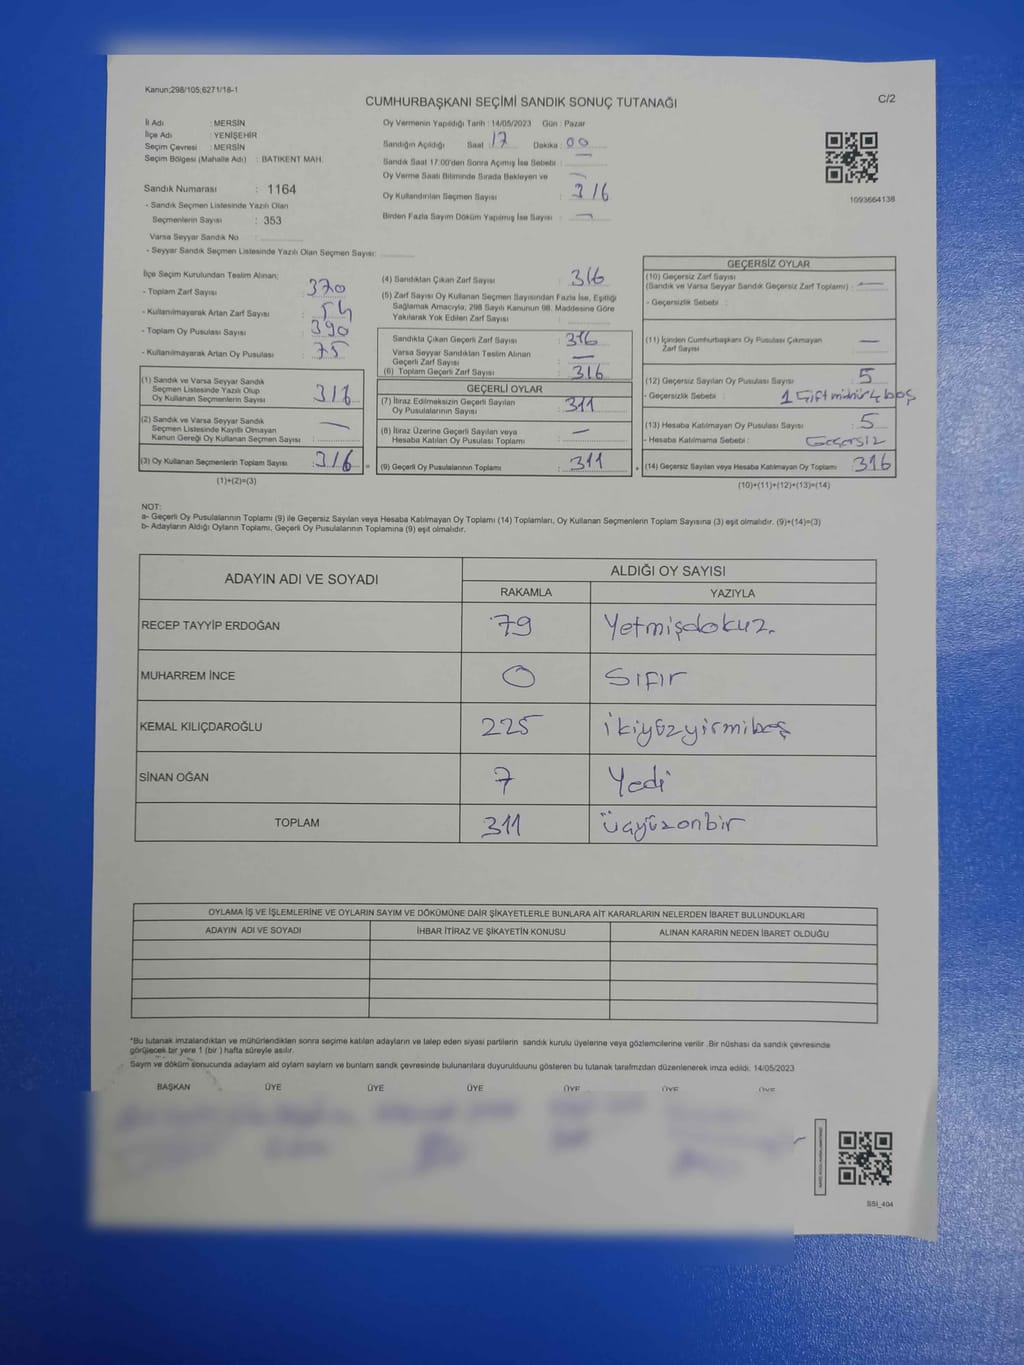 Kanun;298/105;6271/18-1
CUMHURBAŞKANI SEÇİMİ SANDIK SONUÇ TUTANAĞI
C/2
İl Adı : MERSİN
İlçe Adı : YENİŞEHİR
Seçim Çevresi : MERSİN
Seçim Bölgesi (Mahalle Adı) : BATIKENT MAH.
Sandık Numarası : 1164
- Sandık Seçmen Listesinde Yazılı Olan
Seçmenlerin Sayısı : 353
Varsa Seyyar Sandık No :
- Seyyar Sandık Seçmen Listesinde Yazılı Olan Seçmen Sayısı:
Oy Vermenin Yapıldığı Tarih : 14/05/2023 Gün : Pazar
Sandığın Açıldığı Saat : 17 Dakika : 00
Sandık Saat 17:00'den Sonra Açımış İse Sebebi : —
Oy Verme Saati Bitiminde Sırada Bekleyen ve —
Oy Kullandırılan Seçmen Sayısı : 316
Birden Fazla Sayım Döküm Yapılmış İse Sayısı : —
1093664138
İlçe Seçim Kurulundan Teslim Alınan:
- Toplam Zarf Sayısı : 370
- Kullanılmayarak Artan Zarf Sayısı : 54
- Toplam Oy Pusulası Sayısı : 390
- Kullanılmayarak Artan Oy Pusulası : 75
(1) Sandık ve Varsa Seyyar Sandık
Seçmen Listesinde Yazılı Olup
Oy Kullanan Seçmenlerin Sayısı : 316
(2) Sandık ve Varsa Seyyar Sandık
Seçmen Listesinde Kayıtlı Olmayan
Kanun Gereği Oy Kullanan Seçmen Sayısı : —
(3) Oy Kullanan Seçmenlerin Toplam Sayısı : 316 =
(1)+(2)=(3)
(4) Sandıktan Çıkan Zarf Sayısı : 316
(5) Zarf Sayısı Oy Kullanan Seçmen Sayısından Fazla İse, Eşitliği
Sağlamak Amacıyla; 298 Sayılı Kanunun 98. Maddesine Göre
Yakılarak Yok Edilen Zarf Sayısı :
Sandıkta Çıkan Geçerli Zarf Sayısı : 316
Varsa Seyyar Sandıktan Teslim Alınan
Geçerli Zarf Sayısı : —
(6) Toplam Geçerli Zarf Sayısı : 316
GEÇERLİ OYLAR
(7) İtiraz Edilmeksizin Geçerli Sayılan
Oy Pusulalarının Sayısı : 311
(8) İtiraz Üzerine Geçerli Sayılan veya
Hesaba Katılan Oy Pusulası Toplamı : —
(9) Geçerli Oy Pusulalarının Toplamı : 311 +
GEÇERSİZ OYLAR
(10) Geçersiz Zarf Sayısı
(Sandık ve Varsa Seyyar Sandık Geçersiz Zarf Toplamı) : —
- Geçersizlik Sebebi :
(11) İçinden Cumhurbaşkanı Oy Pusulası Çıkmayan
Zarf Sayısı : —
(12) Geçersiz Sayılan Oy Pusulası Sayısı : 5
- Geçersizlik Sebebi : 1 çift mühür 4 boş
(13) Hesaba Katılmayan Oy Pusulası Sayısı : 5
- Hesaba Katılmama Sebebi : Geçersiz
(14) Geçersiz Sayılan veya Hesaba Katılmayan Oy Toplamı : 316
(10)+(11)+(12)+(13)=(14)
NOT:
a- Geçerli Oy Pusulalarının Toplamı (9) ile Geçersiz Sayılan veya Hesaba Katılmayan Oy Toplamı (14) Toplamları, Oy Kullanan Seçmenlerin Toplam Sayısına (3) eşit olmalıdır. (9)+(14)=(3)
b- Adayların Aldığı Oyların Toplamı, Geçerli Oy Pusulalarının Toplamına (9) eşit olmalıdır.
ADAYIN ADI VE SOYADI
ALDIĞI OY SAYISI
RAKAMLA YAZIYLA
RECEP TAYYİP ERDOĞAN 79 Yetmişdokuz.
MUHARREM İNCE 0 Sıfır
KEMAL KILIÇDAROĞLU 225 ikiyüzyirmibeş
SİNAN OĞAN 7 Yedi
TOPLAM 311 üçyüzonbir
OYLAMA İŞ VE İŞLEMLERİNE VE OYLARIN SAYIM VE DÖKÜMÜNE DAİR ŞİKAYETLERLE BUNLARA AİT KARARLARIN NELERDEN İBARET BULUNDUKLARI
ADAYIN ADI VE SOYADI İHBAR İTİRAZ VE ŞİKAYETİN KONUSU ALINAN KARARIN NEDEN İBARET OLDUĞU
*Bu tutanak imzalandıktan ve mühürlendikten sonra seçime katılan adayların ve talep eden siyasi partilerin sandık kurulu üyelerine veya gözlemcilerine verilir .Bir nüshası da sandık çevresinde
görülecek bir yere 1 (bir ) hafta süreyle asılır.
Sayım ve döküm sonucunda adayların aldı oyların sayların ve bunların sandık çevresinde bulunanlara duyurulduunu gösteren bu tutanak tarafımızdan düzenlenerek imza edildi. 14/05/2023
BAŞKAN ÜYE ÜYE ÜYE ÜYE ÜYE ÜYE
SSI_404